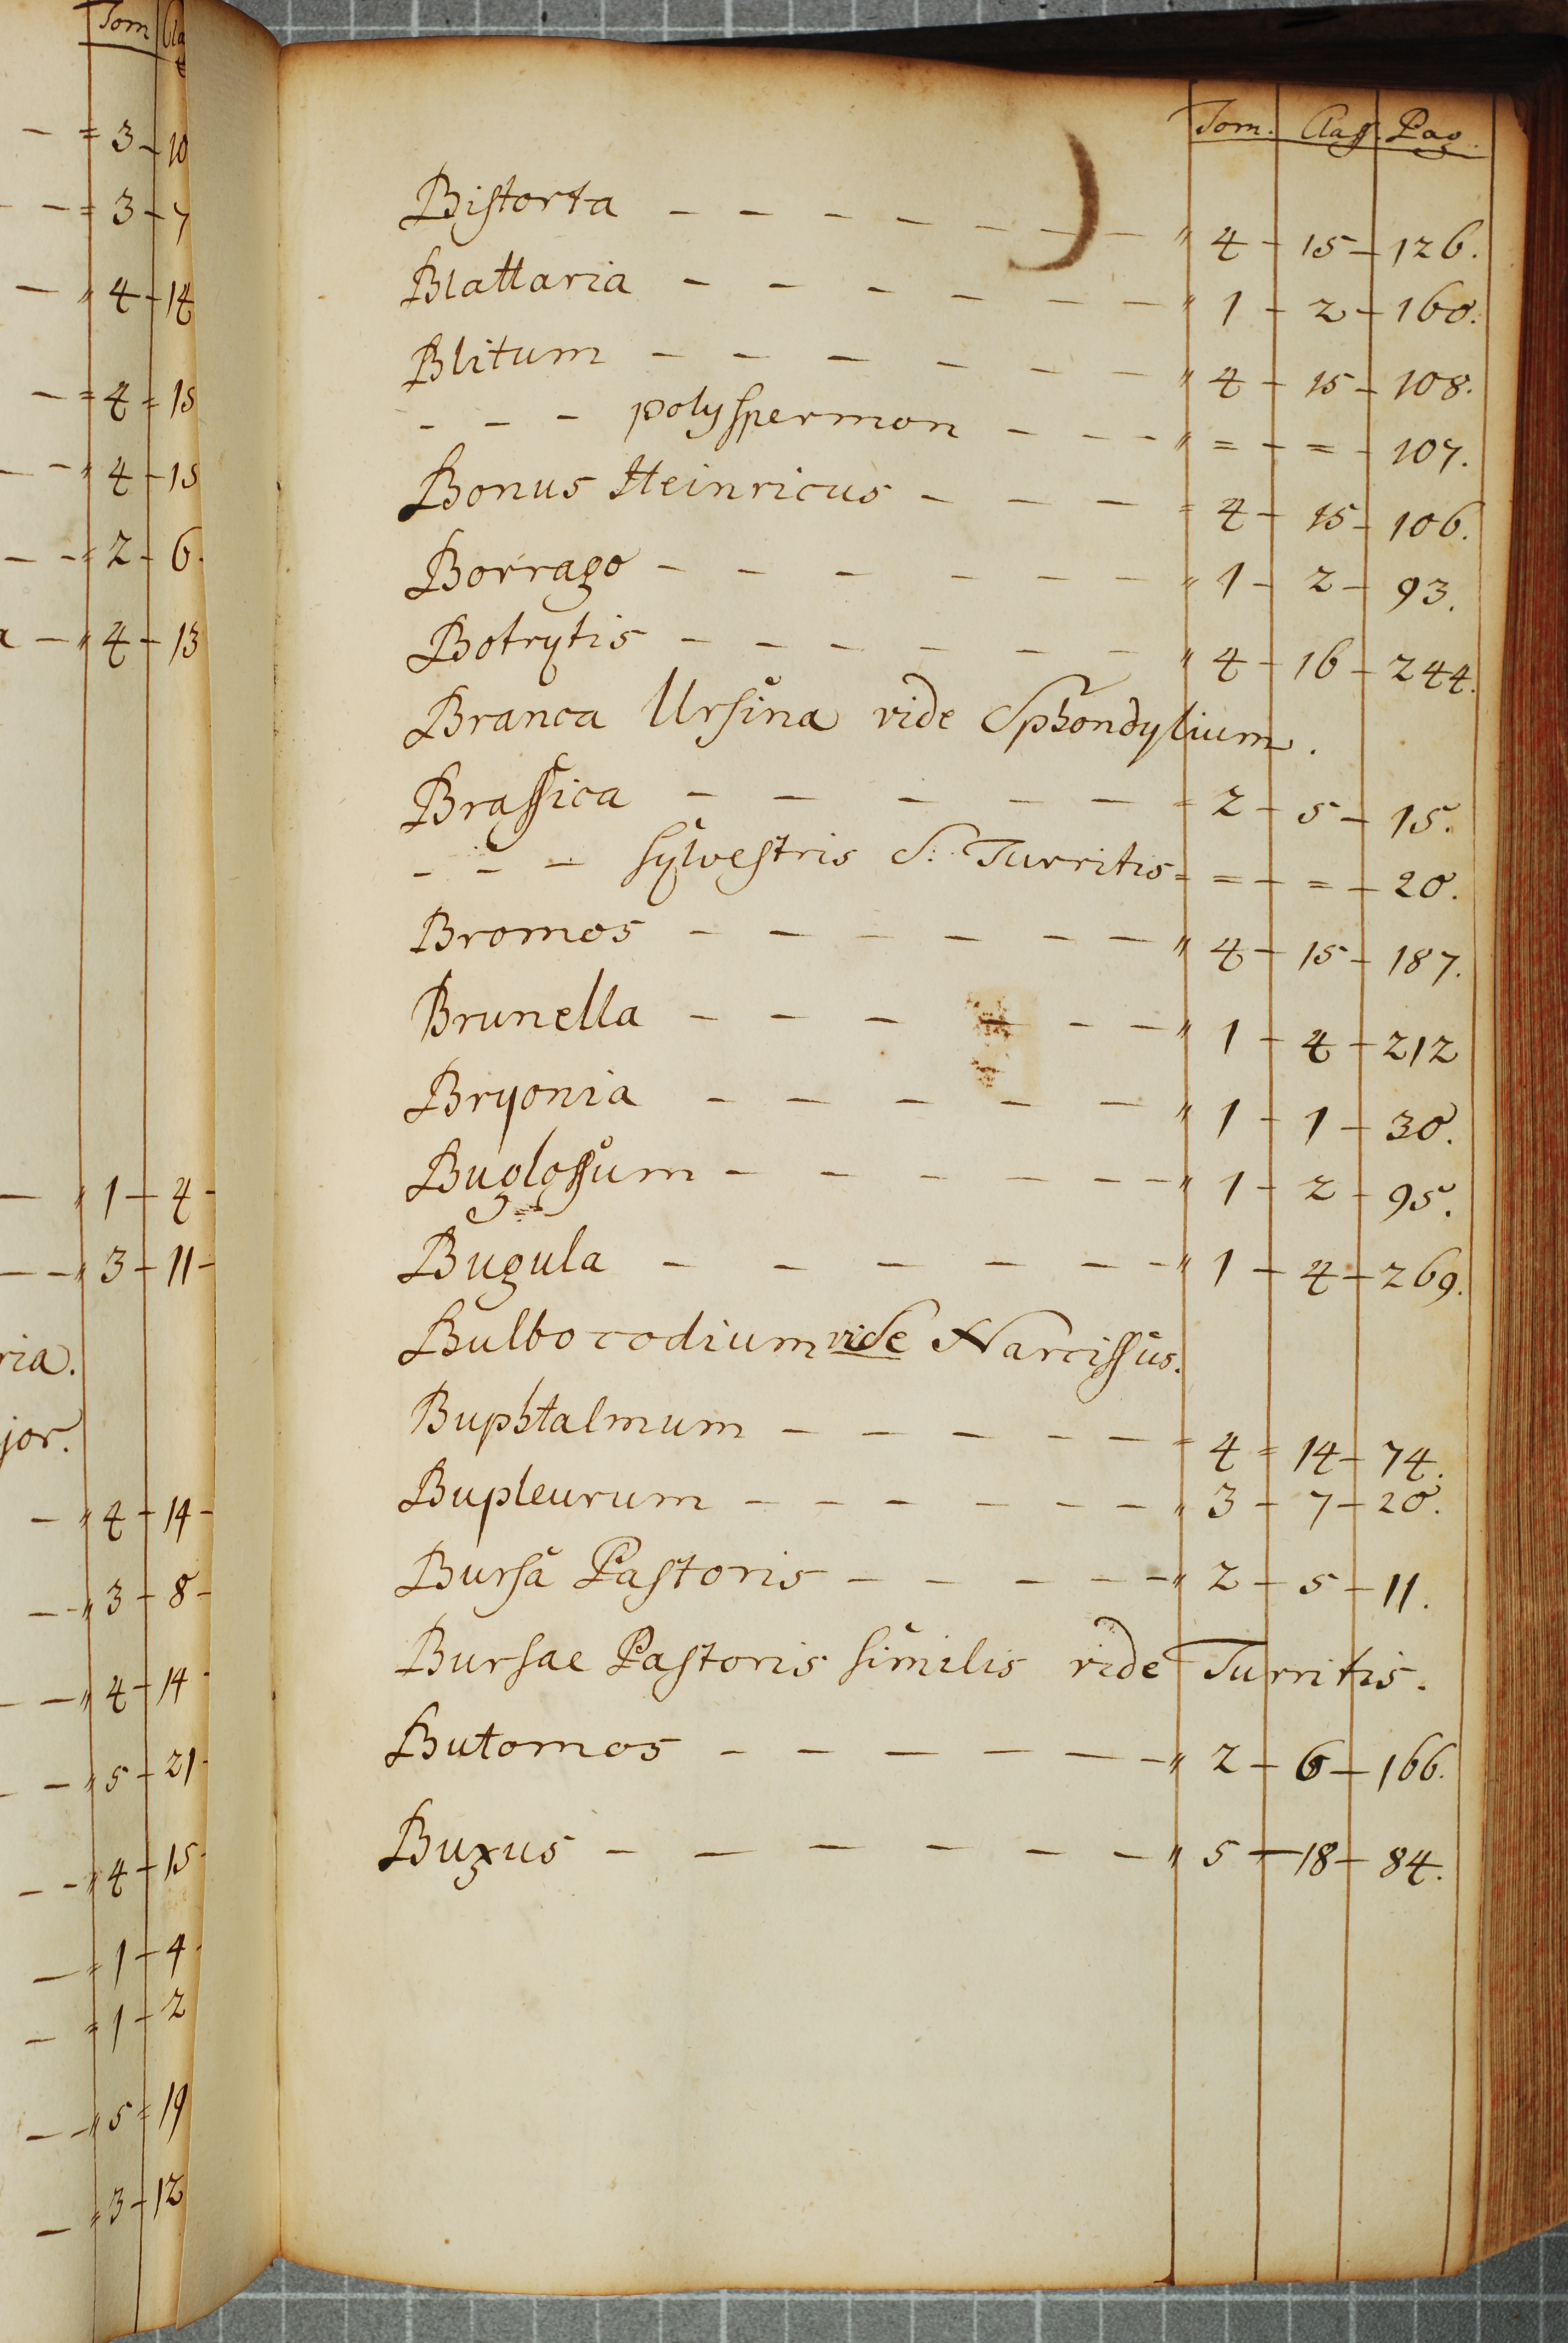 Tom Cla
= 3 - 10
= 3 - 7
" 4 - 14
= 4 = 15
" 4 - 15
= 2 - 6.
" 4 - 13
" 1 - 4 -
" 3 - 11 -
ria.
jor.
" 4 - 14 -
" 3 - 8 -
" 4 - 14 -
" 5 - 21 -
" 4 - 15 -
= 1 - 4 -
= 1 - 2
" 5 = 19
" 3 - 12
Tom. Claſſ. Pag.
Biſtorta - - - - - - - " 4 - 15 - 126.
Blattaria - - - - - - " 1 - 2 - 160.
Blitum - - - - - - " 4 - 15 - 108.
- - - polyſpermon - - - " = - = - 107.
Bonus Heinricus - - - = 4 - 15 - 106.
Borrago - - - - - - " 1 - 2 - 93.
Botrytis - - - - - - " 4 - 16 - 244.
Branca Urſina vide Sphondylium.
Braſſica - - - - - = 2 - 5 - 15.
- - - ſylveſtris S. Turritis = = - = - 20.
Bromos - - - - - - " 4 - 15 - 187.
Brunella - - - - - - " 1 - 4 - 212
Bryonia - - - - - " 1 - 1 - 30.
Bugloſſum - - - - - - " 1 - 2 - 95.
Bugula - - - - - - " 1 - 4 - 269.
Bulbocodium vide Narciſſus.
Buphtalmum - - - - - = 4 = 14 - 74.
Bupleurum - - - - - - " 3 - 7 - 20.
Burſa Paſtoris - - - - - " 2 - 5 - 11.
Burſae Paſtoris ſimilis vide Turritis.
Butomos - - - - - - " 2 - 6 - 166.
Buxus - - - - - - " 5 - 18 - 84.